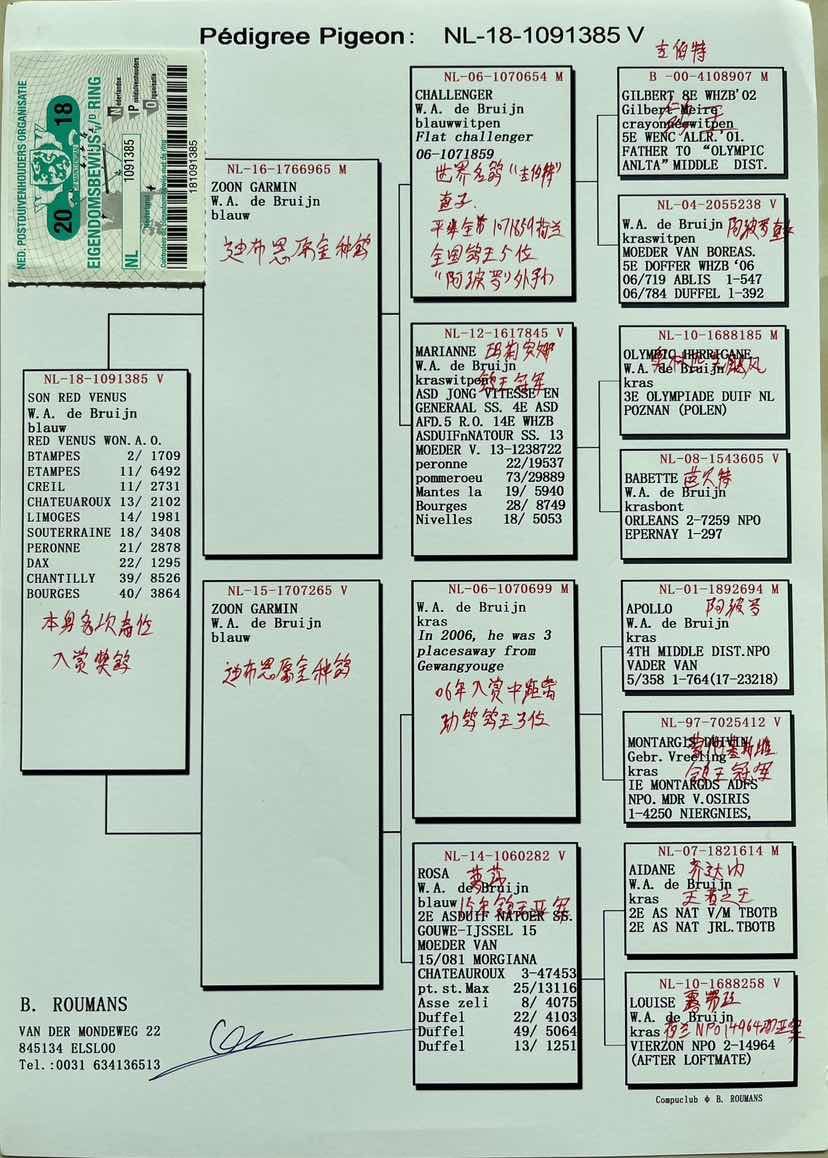 Pédigree Pigeon: NL-18-1091385 V
吉伯特
NED. POSTDUIVENHOUDERS ORGANISATIE
20 18
EIGENDOMSBEWIJS v/d RING
Nederlandse
Postduivenhouders
Organisatie
NL
1091385
181091385
NL-18-1091385 V
SON RED VENUS
W.A. de Bruijn
blauw
RED VENUS WON.A.O.
BTAMPES 2/ 1709
ETAMPES 11/ 6492
CREIL 11/ 2731
CHATEUAROUX 13/ 2102
LIMOGES 14/ 1981
SOUTERRAINE 18/ 3408
PERONNE 21/ 2878
DAX 22/ 1295
CHANTILLY 39/ 8526
BOURGES 40/ 3864
本身多次高位
入赏奖鸽
NL-16-1766965 M
ZOON GARMIN
W.A. de Bruijn
blauw
迪布恩原金种鸽
NL-15-1707265 V
ZOON GARMIN
W.A. de Bruijn
blauw
迪布恩原金种鸽
NL-06-1070654 M
CHALLENGER
W.A. de Bruijn
blauwwitpen
Flat challenger
06-1071859
世界名鸽“吉伯特”
直子.
平辈全兄1071859荷兰
全国鸽王5位
“阿波罗”外孙
NL-12-1617845 V
MARIANNE 玛莉安娜
W.A. de Bruijn
kraswitpen 鸽王冠军
ASD JONG VITESSE EN
GENERAAL SS. 4E ASD
AFD.5 R.O. 14E WHZB
ASDUIFnNATOUR SS. 13
MOEDER V. 13-1238722
peronne 22/19537
pommeroeu 73/29889
Mantes la 19/ 5940
Bourges 28/ 8749
Nivelles 18/ 5053
NL-06-1070699 M
W.A. de Bruijn
kras
In 2006, he was 3
placesaway from
Gewangyouge
06年入赏中距离
幼鸽鸽王3位
NL-14-1060282 V
ROSA 萝莎
W.A. de Bruijn
blauw 15年鸽王亚军
2E ASDUIF NATOER SS.
GOUWE-IJSSEL 15
MOEDER VAN
15/081 MORGIANA
CHATEAUROUX 3-47453
pt.st.Max 25/13116
Asse zeli 8/ 4075
Duffel 22/ 4103
Duffel 49/ 5064
Duffel 13/ 1251
B -00-4108907 M
GILBERT 8E WHZB'02
Gilbert Meire
crayonnewitpen
5E WENC ALLR. 01.
FATHER TO “OLYMPIC
ANLTA” MIDDLE DIST.
NL-04-2055238 V
W.A. de Bruijn 阿波罗直女
kraswitpen
MOEDER VAN BOREAS.
5E DOFFER WHZB ‘06
06/719 ABLIS 1-547
06/784 DUFFEL 1-392
NL-10-1688185 M
OLYMPIC HURRICANE
W.A. de Bruijn 奥林匹克飓风
kras
3E OLYMPIADE DUIF NL
POZNAN (POLEN)
NL-08-1543605 V
BABETTE 芭贝特
W.A. de Bruijn
krasbont
ORLEANS 2-7259 NPO
EPERNAY 1-297
NL-01-1892694 M
APOLLO 阿波罗
W.A. de Bruijn
kras
4TH MIDDLE DIST.NPO
VADER VAN
5/358 1-764(17-23218)
NL-97-7025412 V
MONTARGIS DUIVIN/
Gebr.Vreeling
kras 鸽王冠军
IE MONTARGDS ADFS
NPO.MDR V.OSIRIS
1-4250 NIERGNIES,
NL-07-1821614 M
AIDANE 齐达内
W.A. de Bruijn
kras 王者之王
2E AS NAT V/M TBOTB
2E AS NAT JRL.TBOTB
NL-10-1688258 V
LOUISE 露易丝
W.A. de Bruijn
kras 荷兰NPO14964羽亚军
VIERZON NPO 2-14964
(AFTER LOFTMATE)
B. ROUMANS
VAN DER MONDEWEG 22
845134 ELSLOO
Tel.:0031 634136513
Compuclub ф B. ROUMANS